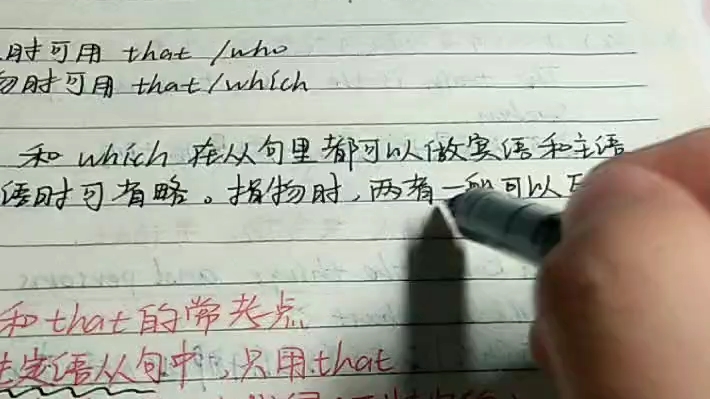 时可用 that /who
时可用 that/which
和 which 在从句里都可以做宾语和主语
语时可省略。指物时,两者一般可以
和that的常考点
定语从句中,只用that